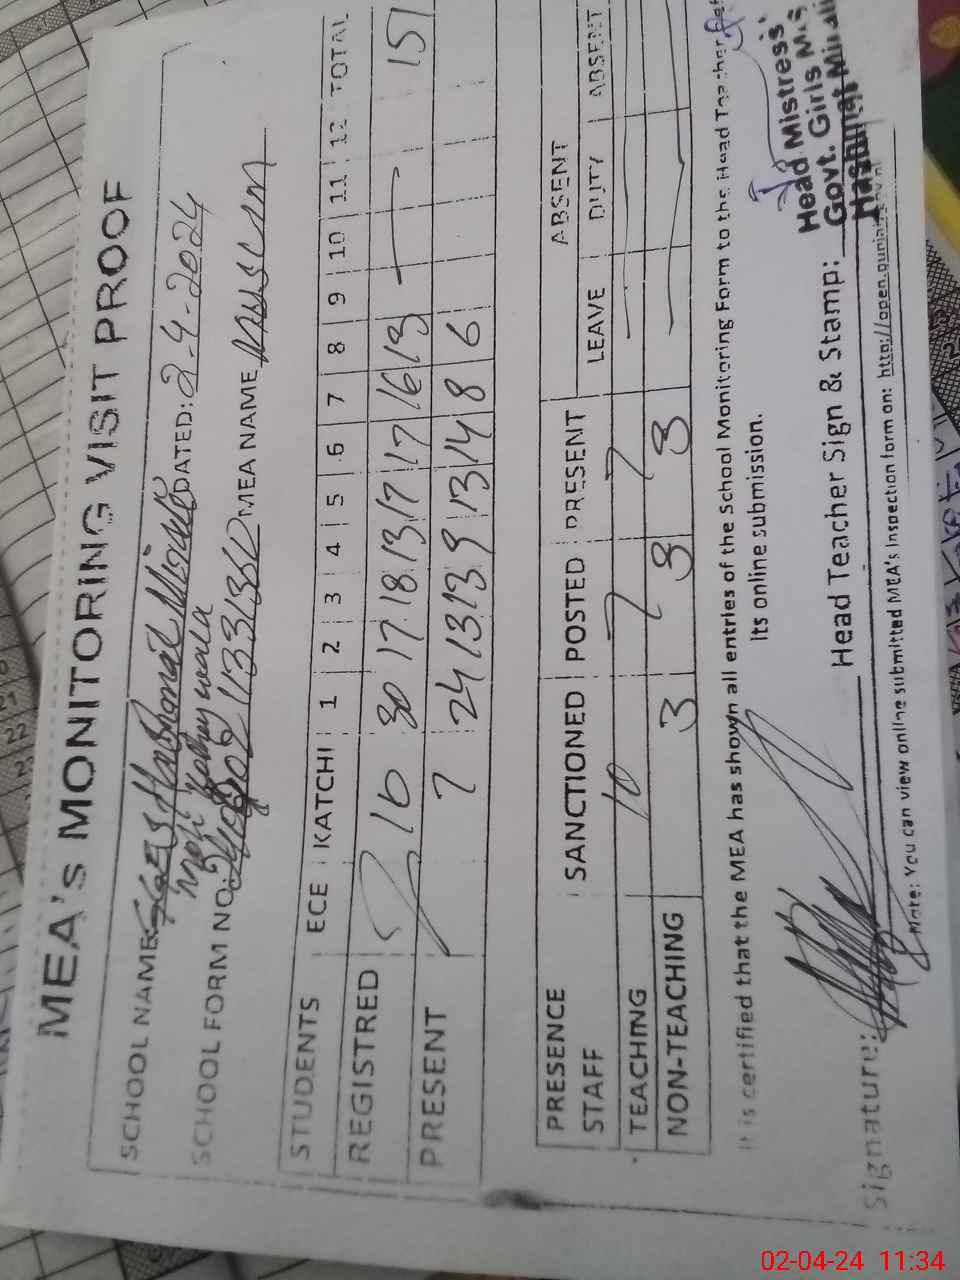 MEA's MONITORING VISIT PROOF
SCHOOL NAME: GGES Hashmat Mirali DATED: 2-4-2024
Moji
SCHOOL FORM NO: MEA NAME
STUDENTS ECE KATCHI 1 2 3 4 5 6 7 8 9 10 11 12 TOTAL
REGISTRED 16 30 17 18 13 17 17 16 13 — 151
PRESENT 7 24 13 13 9 13 14 8 6
PRESENCE SANCTIONED POSTED PRESENT ABSENT
STAFF LEAVE DUTY ABSENT
TEACHING 10 7 7
NON-TEACHING 3 3 3
It is certified that the MEA has shown all entries of the School Monitoring Form to the Head Teacher
Its online submission.
Head Mistress
Govt. Girls M.S
Signature: Head Teacher Sign & Stamp: Hashmat Mirali
Note: You can view online submitted MEA's Inspection form on: http://open.punjab.gov.pk
02-04-24 11:34